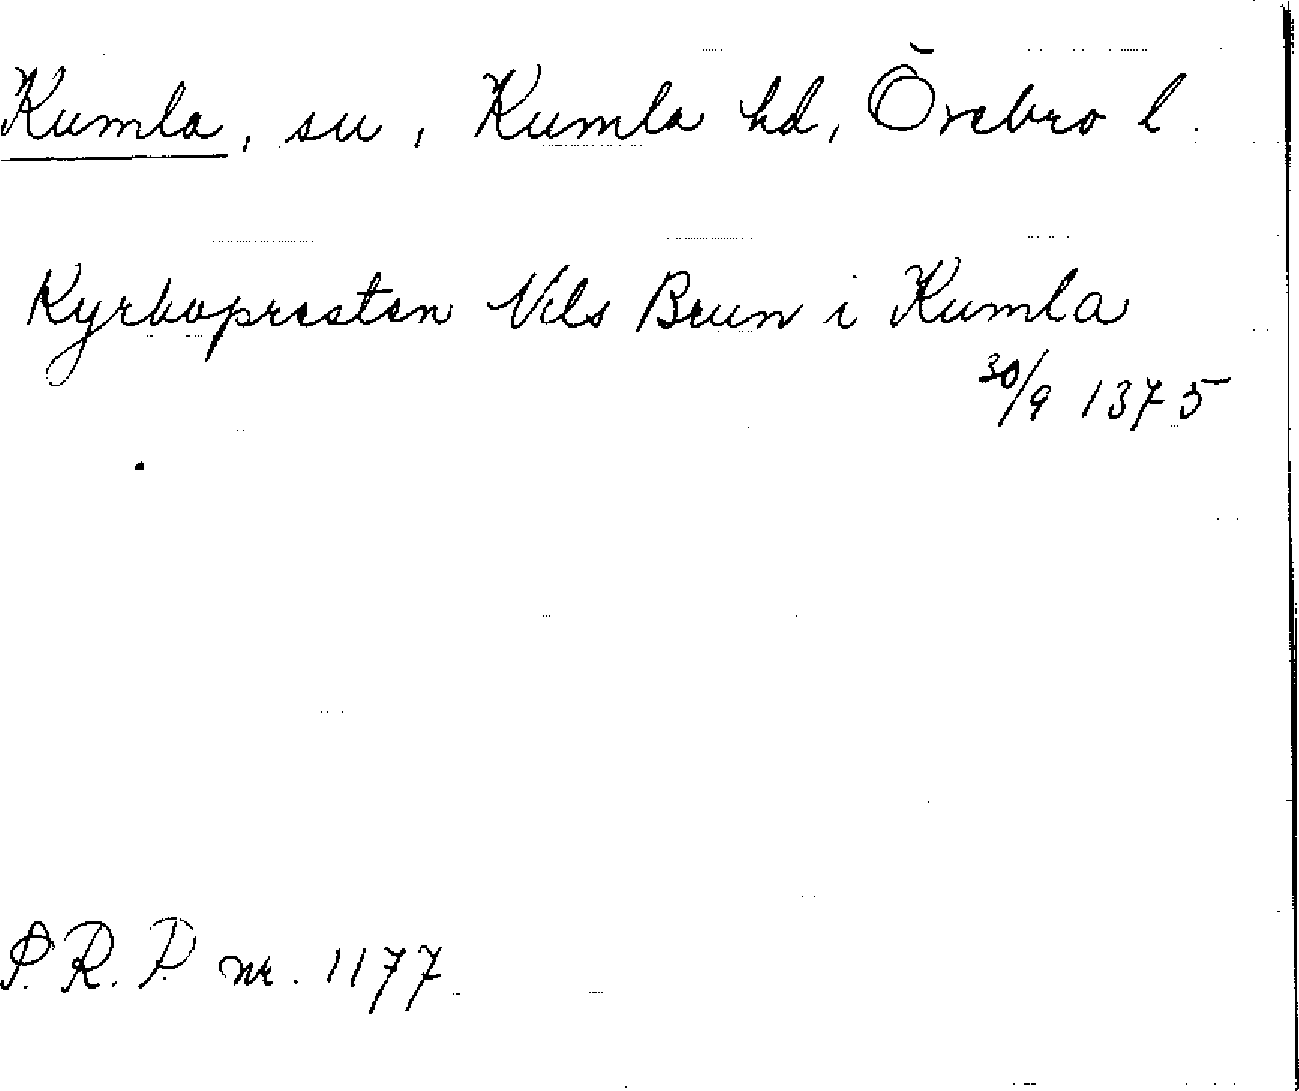 Kumla, sn, Kumla hd, Örebro l.
Kyrkopresten Nils Brun i Kumla
30/9 1375
P.R.P. nr. 1177